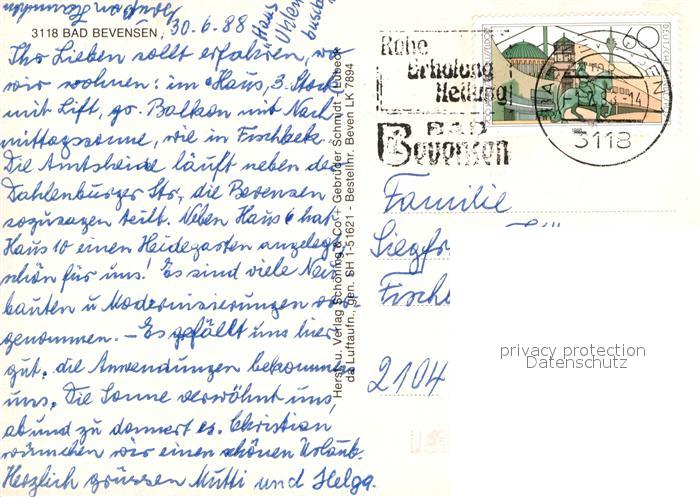 3118 BAD BEVENSEN, 30.6.88
"Haus
Uhlen
Ihr Lieben sollt erfahren, wo
wir wohnen: im Haus, 3. Stock
mit Lift, gr. Balkon mit Nach
mittagssonne, wie in Fischbek.
Die Amtsheide läuft neben der
Dahlenburger Str., die Bevensen
sozusagen teilt. Neben Haus 6 hat
Haus 10 einen Heidegarten angelegt
schön für uns! Es sind viele Neu
bauten u Modernisierungen vor
genommen. – Es gefällt uns hier
gut, die Anwendungen bekommen
uns. Die Sonne verwöhnt uns,
ab und zu donnert es. Christian
wünschen wir einen schönen Urlaub.
Herzlich grüssen Mutti und Helga.
Herst. u. Verlag Schöning & Co + Gebrüder Schmidt, Lübeck
da Luftaufn., gen. SH 1-51621 - Bestellnr. Beven LK 7894
Ruhe
Erholung
Heilung
BAD
Bevensen
60
DEUTSCHE
14
3118
Familie
Siegfr
Fische
2104
privacy protection
Datenschutz